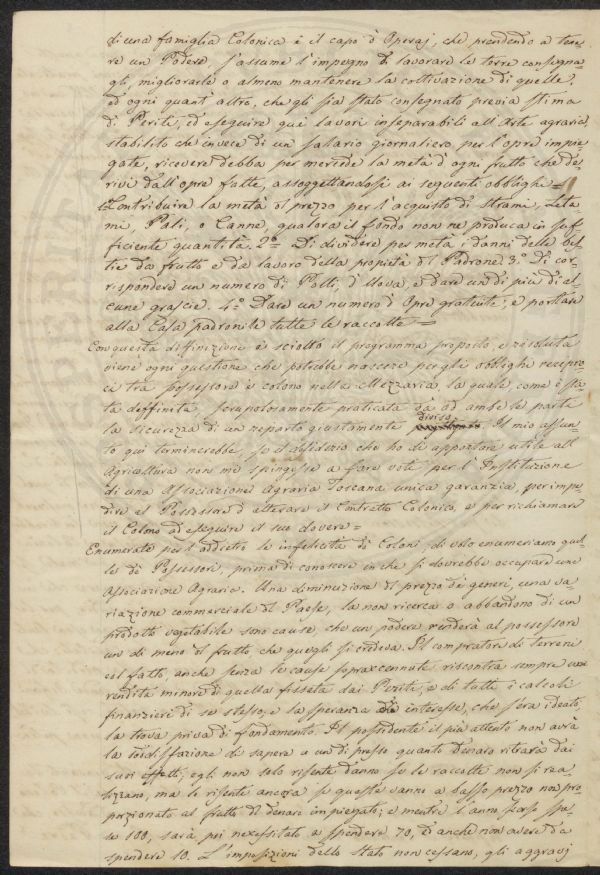 di una famiglia Colonica è il capo d'Operaj, che prendendo a tene-
re un Podere, s'assume l'impegno di lavorare le terre consegna-
gli, migliorarle o almeno mantenere la coltivazione di quelle,
ed ogni quant'altro, che gli sia stato consegnato previa stima
di Periti, ed eseguire quei lavori inseparabili all'Arte agraria
stabilito che invece di un salario giornaliero per l'opre impie-
gate, ricevere debba per mercede la metà d'ogni frutto che de-
rivi dall'opre fatte, assoggettandosi ai seguenti obblighi =
Contribuire la metà del prezzo per l'acquisto di strami, Leta-
mi, Pali, o Canne, qualora il fondo non ne produca in suf-
ficiente quantità. 2º Di dividere per metà i danni delle bes-
tie da frutto e da lavoro della propietà del Padrone. 3º Di cor-
rispondere un numero di Polli, d'Uova, e dare un di più di al-
cune grascie. 4º Dare un numero d'Opre gratuite, e portare
alla Casa padronile tutte le raccolte =
Con questa diffinizione è sciolto il programma proposto, e risoluta
viene ogni questione che potrebbe nascere per gli obblighi recipro-
ci tra possessore e colono nella Mezzaria, la quale come è sta-
ta deffinita, scrupolosamente praticata dà ad ambe le parti
la sicurezza di un reparto giustamente diviso. Il mio assun-
to qui terminerebbe, se il desiderio che ho di apportare utile all'
Agricoltura non mi spingesse a fare voti per l'Instituzione
di una Associazione Agraria Toscana unica garanzia, per impe-
dire al Possessore d'alterare il Contratto Colonico, e per richiamare
il Colono ad eseguire il suo dovere =
Enumerate per l'addietro le infelicità de Coloni, di volo enumeriamo quel-
le de Possessori, prima di conoscere in che si dovrebbe occupare una
Associazione Agraria. Una diminuzione di prezzo de generi, una va-
riazione commerciale del Paese, la non ricerca o abbandono di un
prodotto vegetabile sono cause, che un podere renderà al possessore
un di meno di frutto che quegli si credeva. Il compratore di terreni
al fatto, anche senza le cause sopraccennate, riscontra sempre una
rendita minore di quella fissata dai Periti, e di tutti i calcoli
finanzieri di se stesso, e la speranza di interesse, che s'era ideato,
la trova priva di fondamento. Il possidente il più attento non avrà
la soddisfazione di sapere a un di presso quanto denaro ritrarà dai
suoi effetti, egli non solo risente danno se le raccolte non si rea-
lizzano, ma lo risente ancora se queste vanno a basso prezzo non pro-
porzionato al frutto del denaro impiegato; e mentre l'anno scorso spe-
se 100, sarà poi necessitato a spendere 70, ed anche non avere da
spendere 10. L'imposizioni dello Stato non cessano, gli aggravj